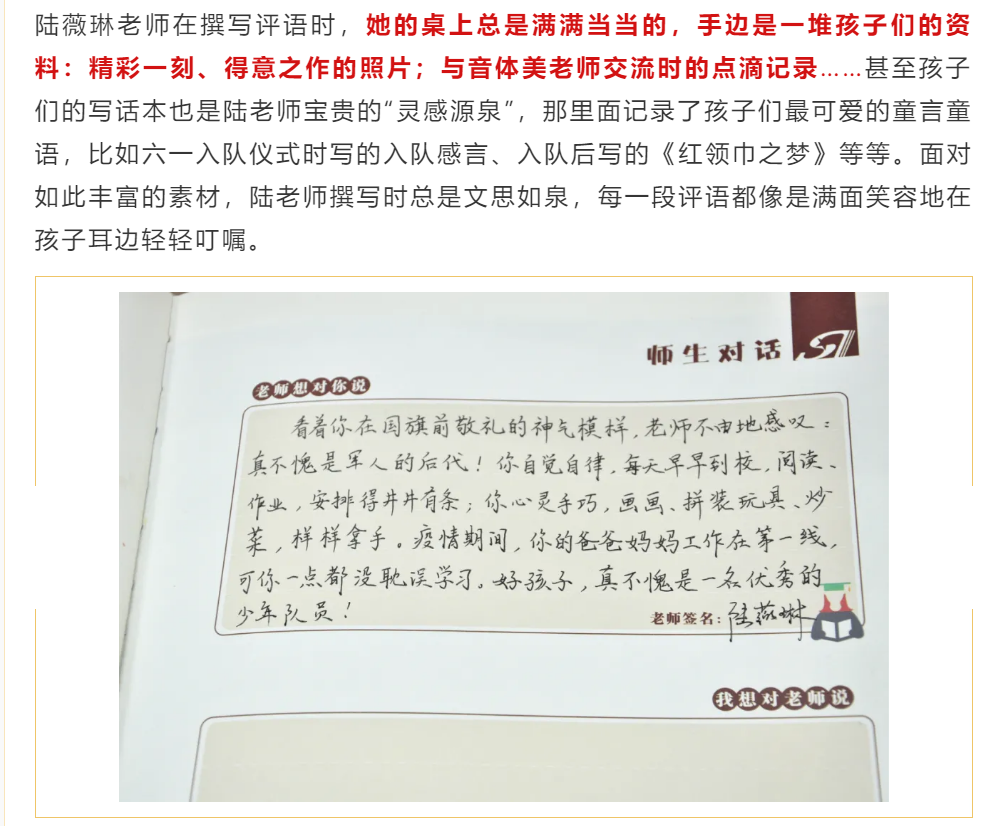 陆薇琳老师在撰写评语时，她的桌上总是满满当当的，手边是一堆孩子们的资
料：精彩一刻、得意之作的照片；与音体美老师交流时的点滴记录……甚至孩子
们的写话本也是陆老师宝贵的“灵感源泉”，那里面记录了孩子们最可爱的童言童
语，比如六一入队仪式时写的入队感言、入队后写的《红领巾之梦》等等。面对
如此丰富的素材，陆老师撰写时总是文思如泉，每一段评语都像是满面笑容地在
孩子耳边轻轻叮嘱。
师生对话
老师想对你说
看着你在国旗前敬礼的神气模样，老师不由地感叹：
真不愧是军人的后代！你自觉自律，每天早早到校，阅读、
作业，安排得井井有条；你心灵手巧，画画、拼装玩具、炒
菜，样样拿手。疫情期间，你的爸爸妈妈工作在第一线，
可你一点都没耽误学习。好孩子，真不愧是一名优秀的
少年队员！
老师签名：陆薇琳
我想对老师说